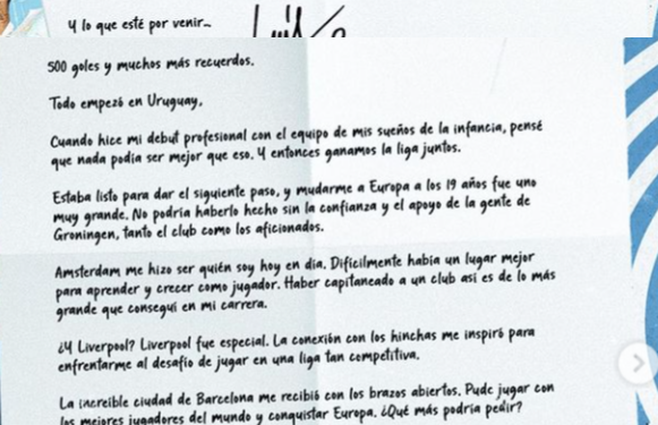 Y lo que esté por venir...
500 goles y muchos más recuerdos.
Todo empezó en Uruguay.
Cuando hice mi debut profesional con el equipo de mis sueños de la infancia, pensé
que nada podía ser mejor que eso. Y entonces ganamos la liga juntos.
Estaba listo para dar el siguiente paso, y mudarme a Europa a los 19 años fue uno
muy grande. No podría haberlo hecho sin la confianza y el apoyo de la gente de
Groningen, tanto el club como los aficionados.
Amsterdam me hizo ser quién soy hoy en día. Difícilmente había un lugar mejor
para aprender y crecer como jugador. Haber capitaneado a un club así es de lo más
grande que conseguí en mi carrera.
¿Y Liverpool? Liverpool fue especial. La conexión con los hinchas me inspiró para
enfrentarme al desafío de jugar en una liga tan competitiva.
La increíble ciudad de Barcelona me recibió con los brazos abiertos. Pude jugar con
los mejores jugadores del mundo y conquistar Europa. ¿Qué más podría pedir?